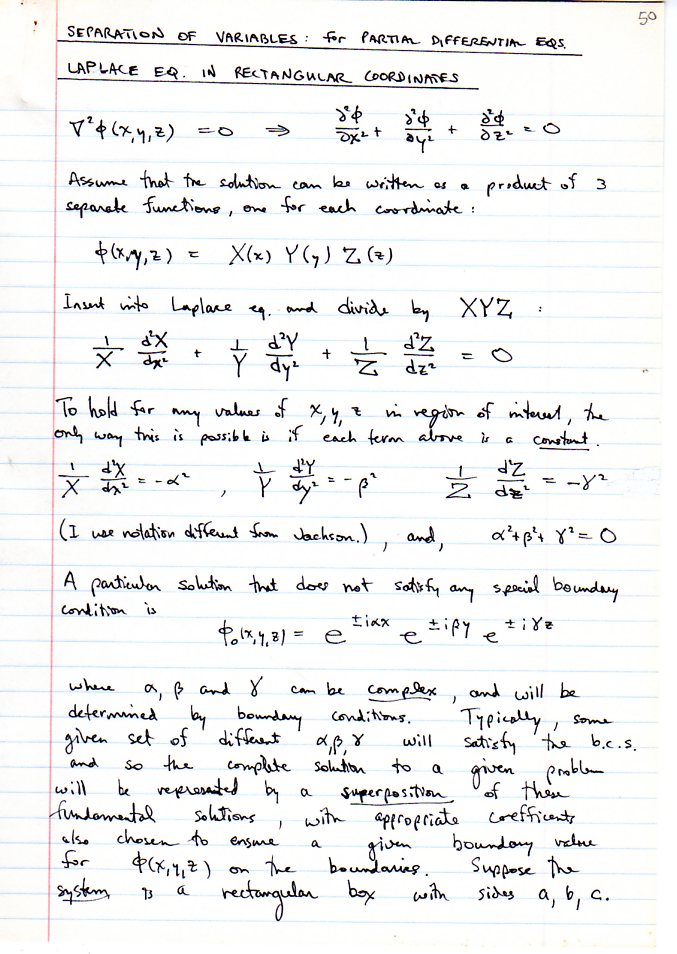 50
SEPARATION OF VARIABLES: for PARTIAL DIFFERENTIAL EQS.
LAPLACE EQ. IN RECTANGULAR COORDINATES
∇²ϕ(x,y,z) = 0 ⇒ ∂²ϕ/∂x² + ∂²ϕ/∂y² + ∂²ϕ/∂z² = 0
Assume that the solution can be written as a product of 3
separate functions, one for each coordinate:
ϕ(x,y,z) = X(x) Y(y) Z(z)
Insert into Laplace eq. and divide by XYZ :
1/X d²X/dx² + 1/Y d²Y/dy² + 1/Z d²Z/dz² = 0
To hold for any values of x, y, z in region of interest, the
only way this is possible is if each term above is a constant.
1/X d²X/dx² = -α² , 1/Y d²Y/dy² = -β² 1/Z d²Z/dz² = -γ²
(I use notation different from Jackson.) , and, α²+β²+γ² = 0
A particular solution that does not satisfy any special boundary
condition is
ϕ₀(x,y,z) = e^{±iαx} e^{±iβy} e^{±iγz}
where α, β and γ can be complex, and will be
determined by boundary conditions. Typically, some
given set of different α,β,γ will satisfy the b.c.s.
and so the complete solution to a given problem
will be represented by a superposition of these
fundamental solutions, with appropriate coefficients
also chosen to ensure a given boundary value
for Φ(x,y,z) on the boundaries. Suppose the
system is a rectangular box with sides a, b, c.